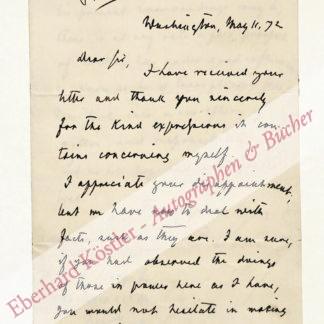 Washington, May 11, 72
Dear Sir,
I have received your
letter and thank you sincerely
for the kind expressions it con-
tains concerning myself.
I appreciate your disappointment,
but we have now to deal with
facts, such as they are. I am sure,
if you had observed the doings
of those in power here as I have,
you would not hesitate in making
Eberhard Köstler - Autographen & Bücher